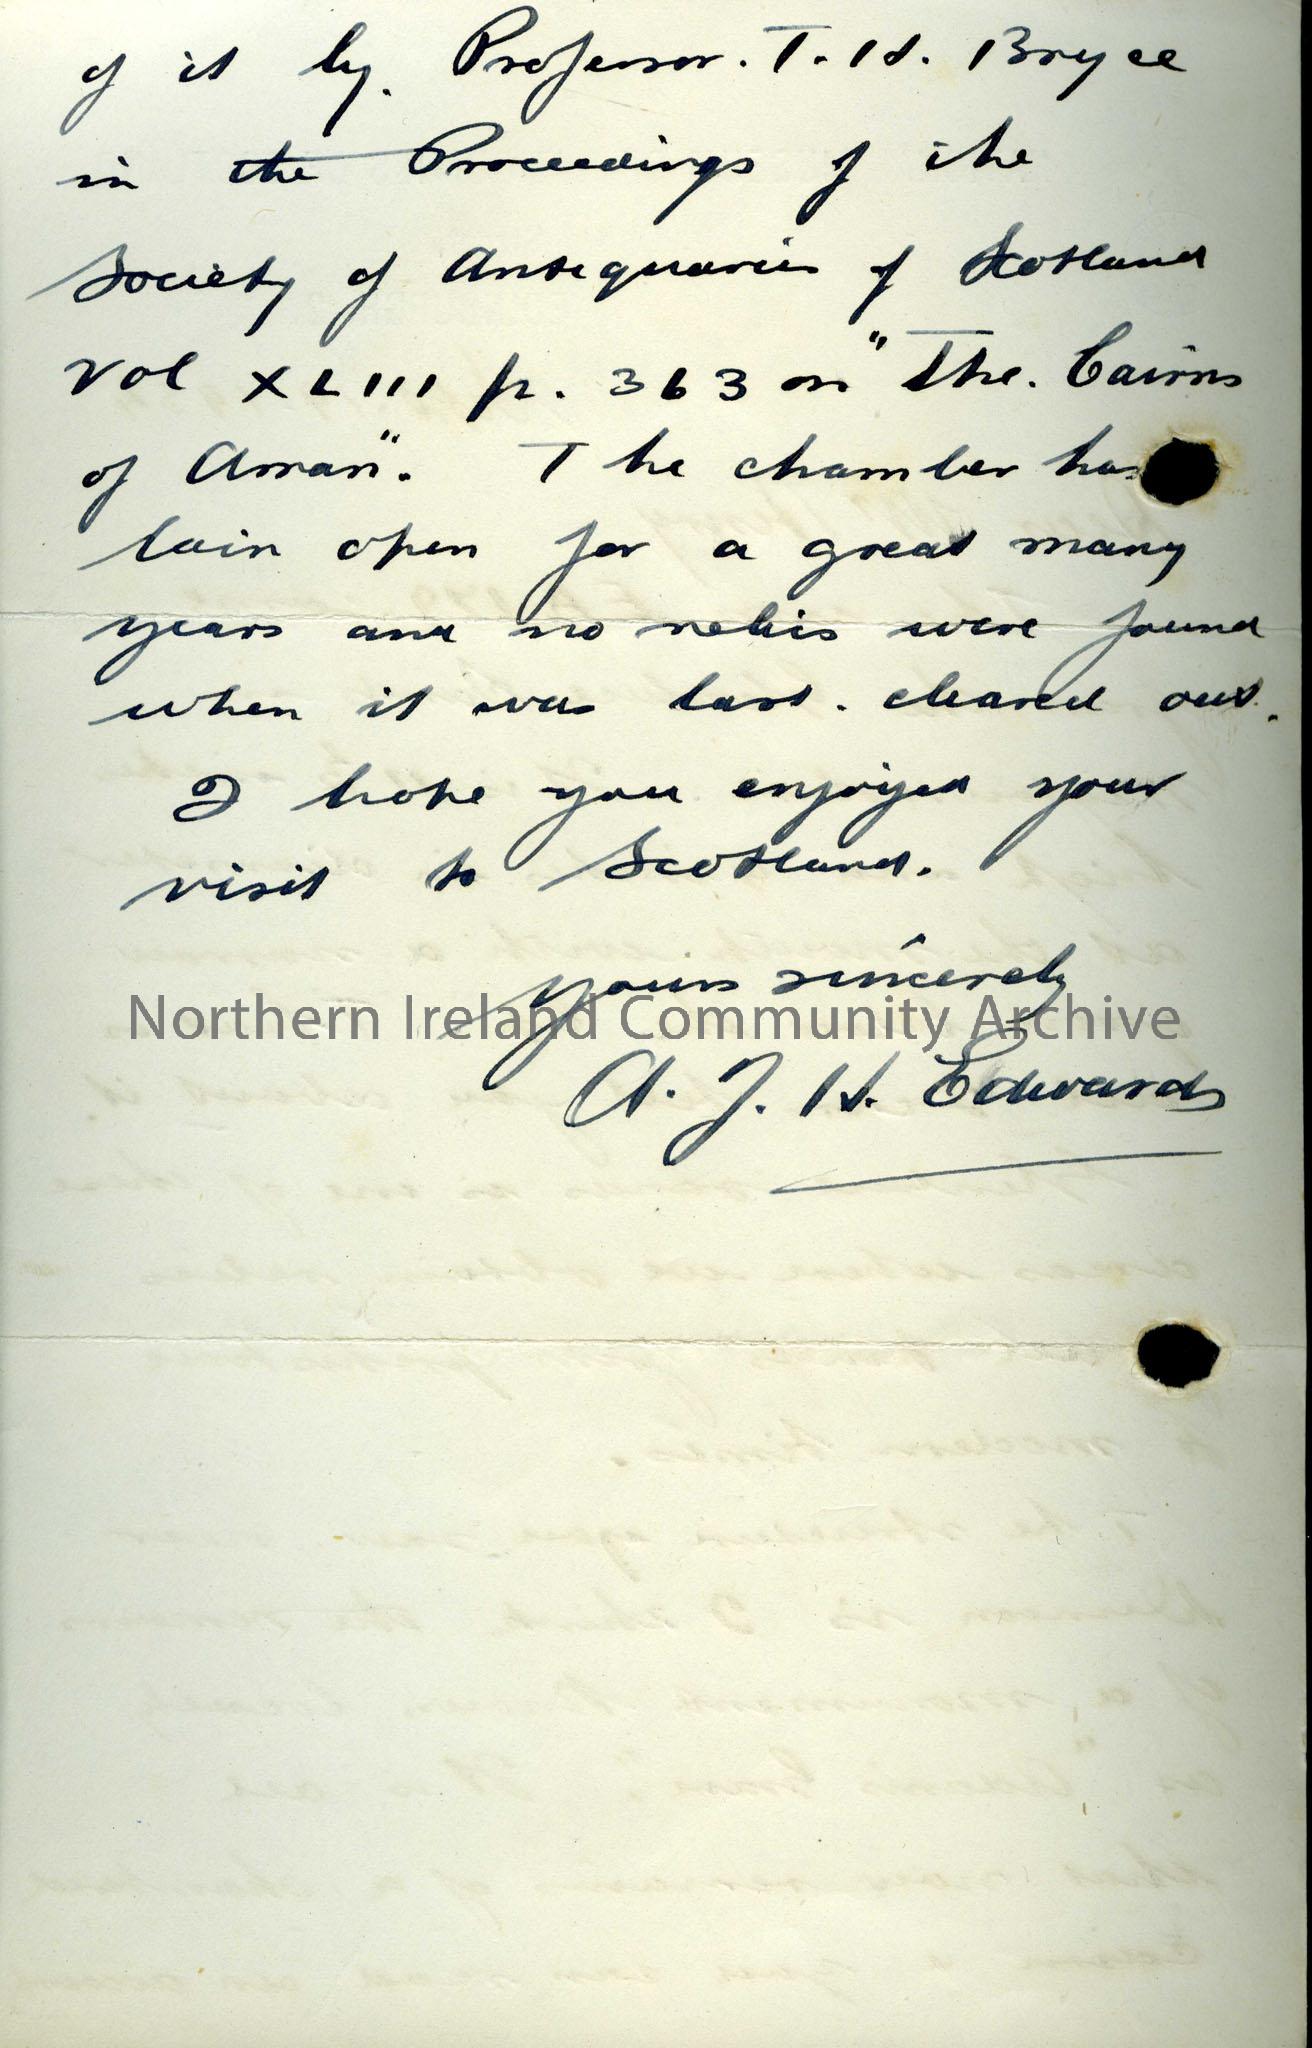 of it by Professor. T. H. Bryce
in the Proceedings of the
Society of Antiquaries of Scotland
Vol XLIII p. 363 on "The Cairns
of Arran". The chamber has
lain open for a great many
years and no relics were found
when it was last cleared out.
I hope you enjoyed your
visit to Scotland.
Yours sincerely
Northern Ireland Community Archive
A. J. H. Edwards